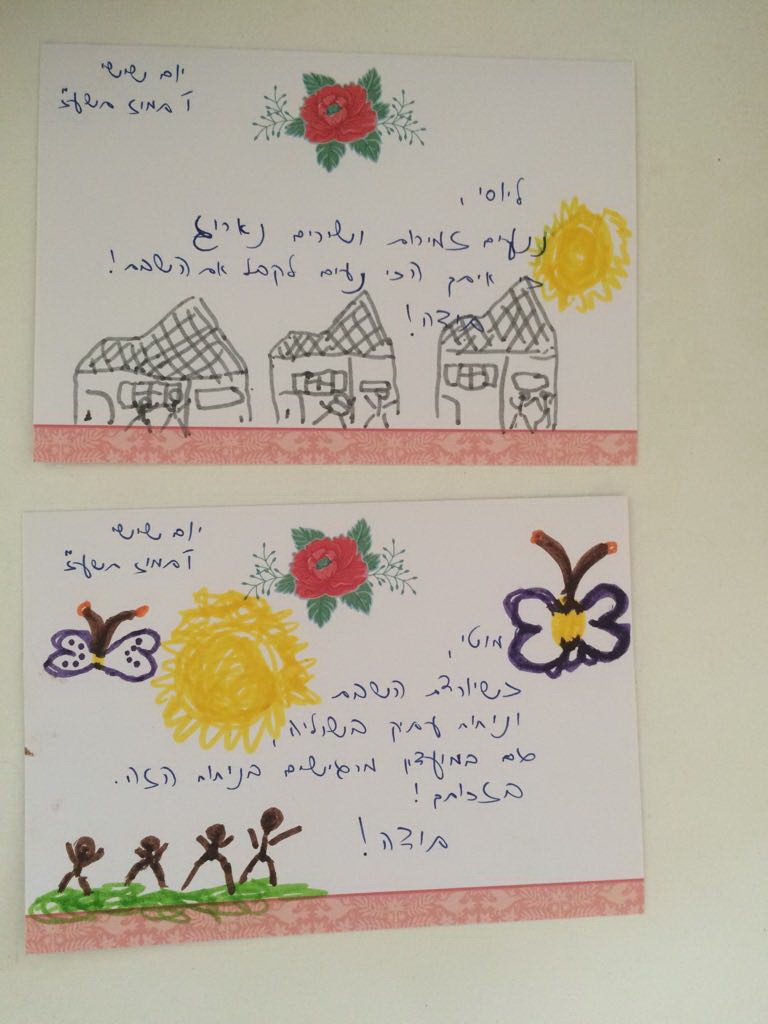 יום שישי
ו' בתמוז תשע"ז
ליוסי,
נוגעים זמירות ושירים נאריג
כ איתך הכי נעים לקבל את השבת!
תודה!
יום שישי
ו' בתמוז תשע"ז
מוטי,
כשיורדת השבת
וניחוח עתיק בשוליה,
גם במועדון מרגישים בניחוח הזה.
בזכותך!
תודה!